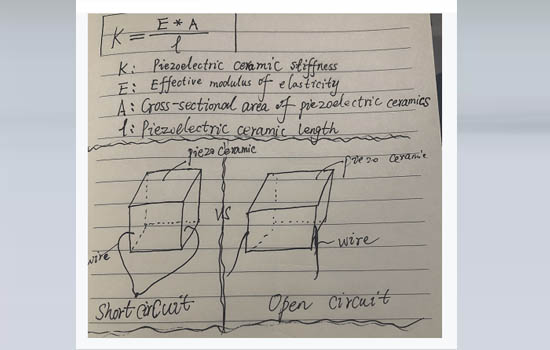 K = E * A / l
K: Piezoelectric ceramic stiffness
E: Effective modulus of elasticity
A: Cross-sectional area of piezoelectric ceramics
l: Piezoelectric ceramic length
piezo ceramic
piezo ceramic
VS
wire
wire
Short circuit
Open circuit